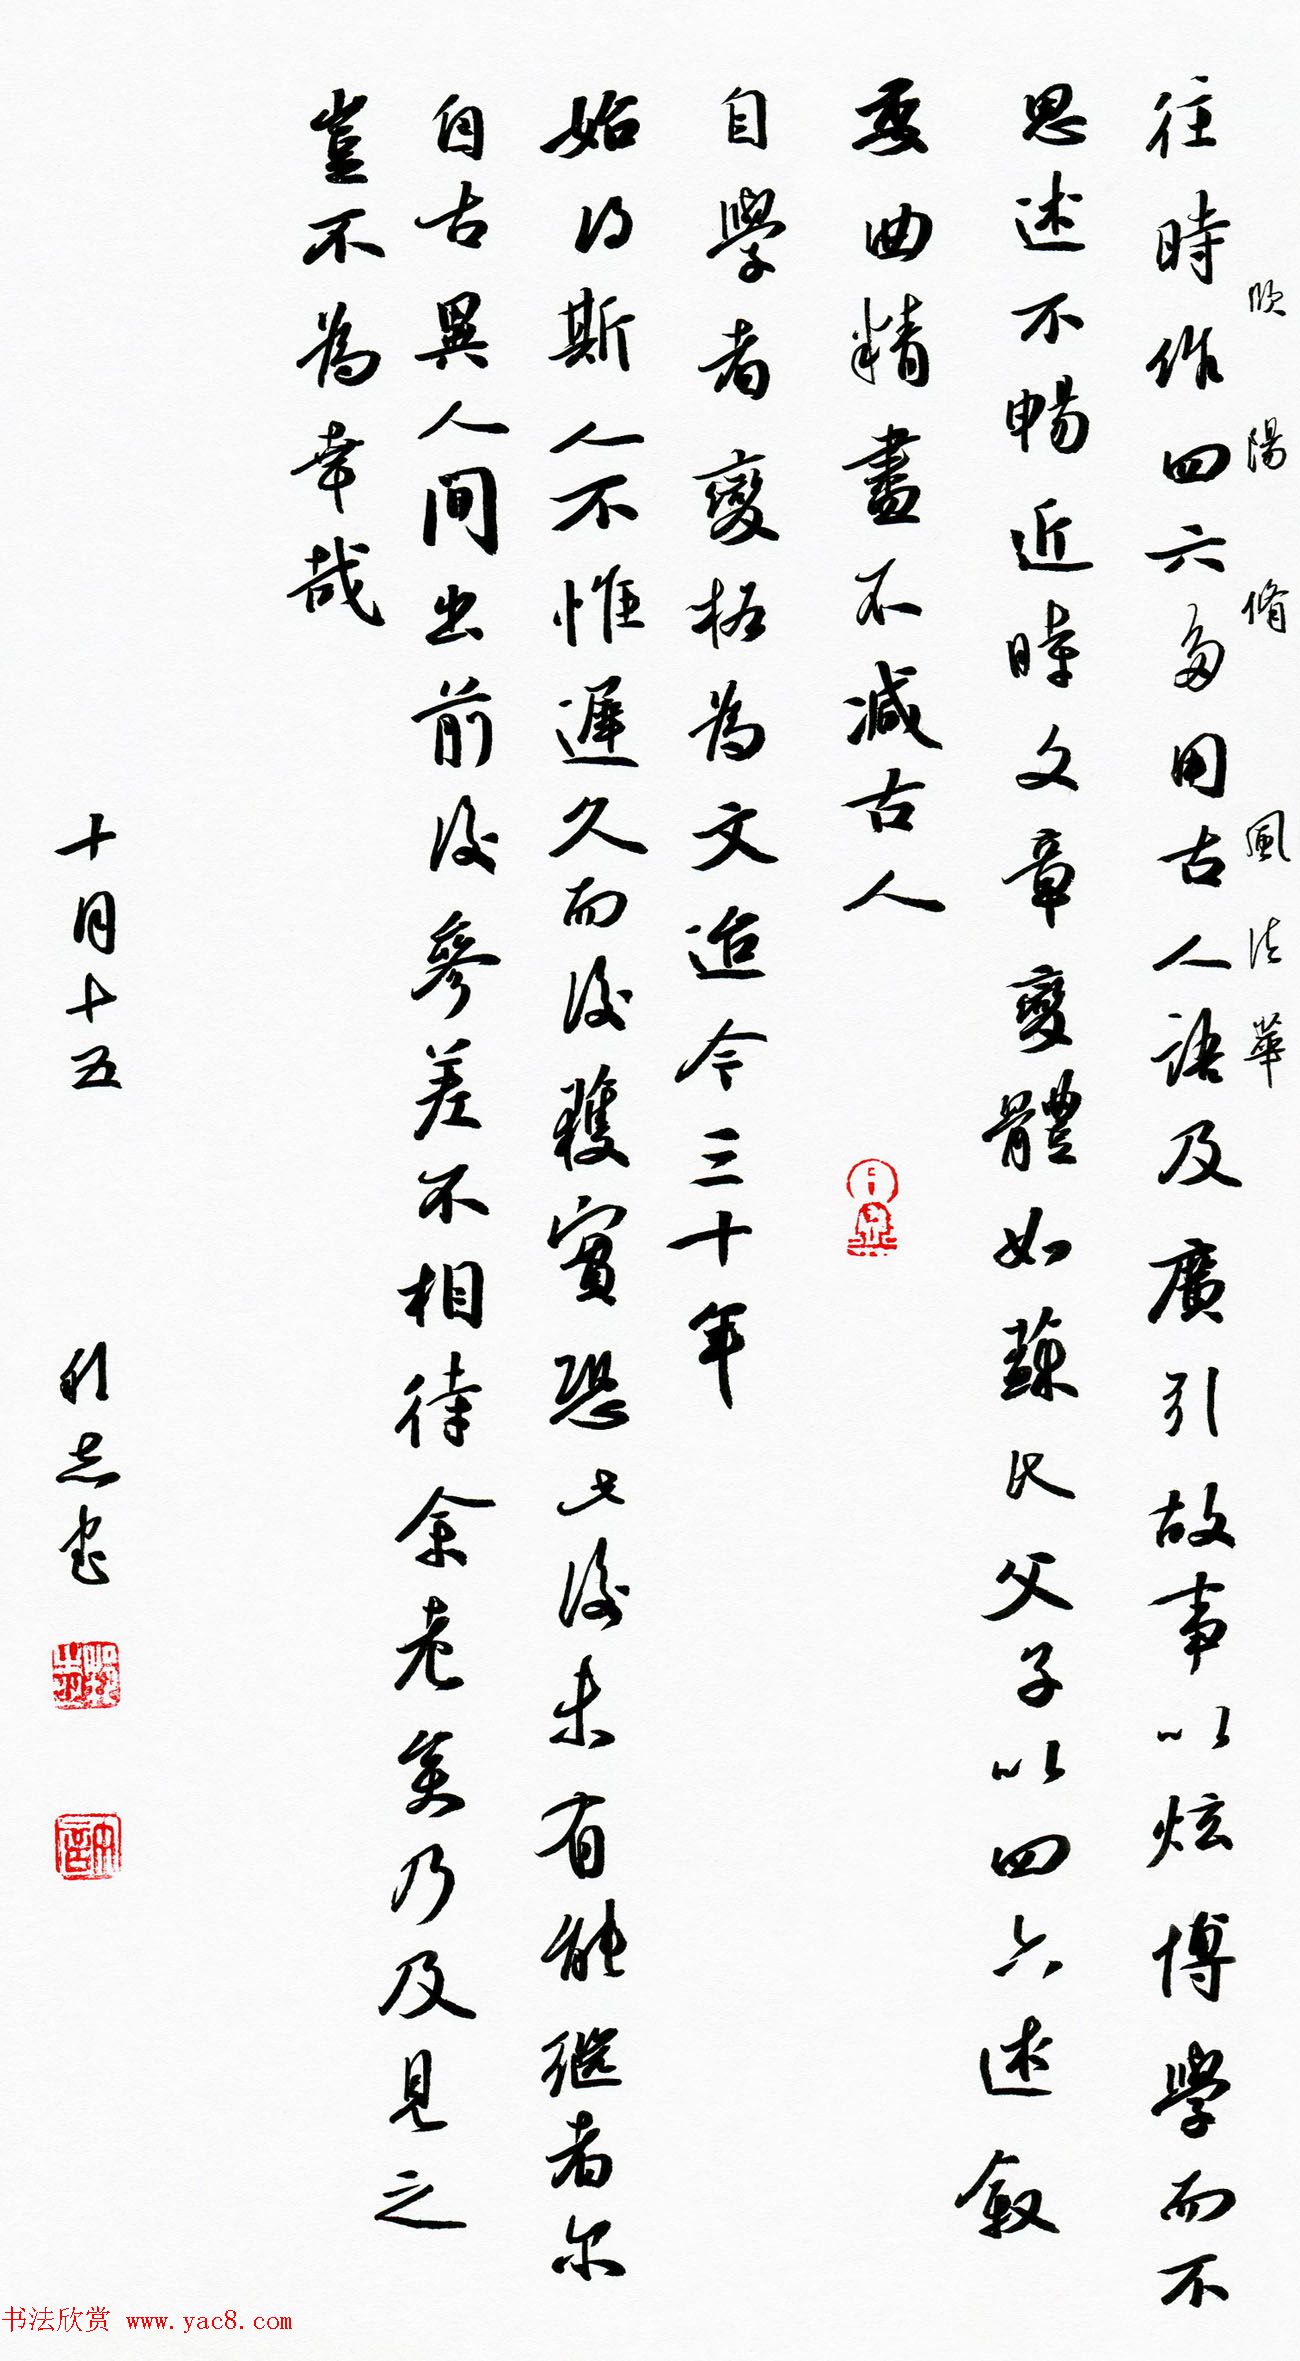 欧陽脩 風法華
往時作四六多用古人語及廣引故事以炫博學而不
思述不暢近時文章變體如蘇氏父子以四六述叙
委曲精盡不减古人
自學者變格為文迨今三十年
始得斯人不惟遲久而後獲實恐此後未有能继者尔
自古異人間出前後參差不相待余老矣乃及見之
豈不為幸哉
十月十五
书法欣赏 www.yac8.com